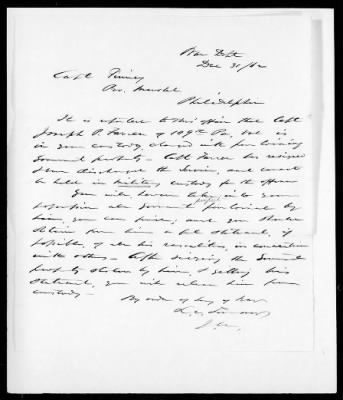 War Dept
Dec 31/62
Capt Finney
Pro. Marshal
Philadelphia
It is reported to this office that Capt
Joseph P. of 109th Pa. Vol is
in your custody, charged with purloining
Government property - Capt has resigned
& been discharged the Service, and cannot
be held in military custody for the offence
You will however take into your
possession all Government property purloined by
him, you can find; and you should
obtain from him a full statement, if
possible, of all his in connection
with others - After seizing the Government
property stolen by him, & getting his
statement, you will release him from
custody -
By order of Secy of War
L. C. Turner
J. A.